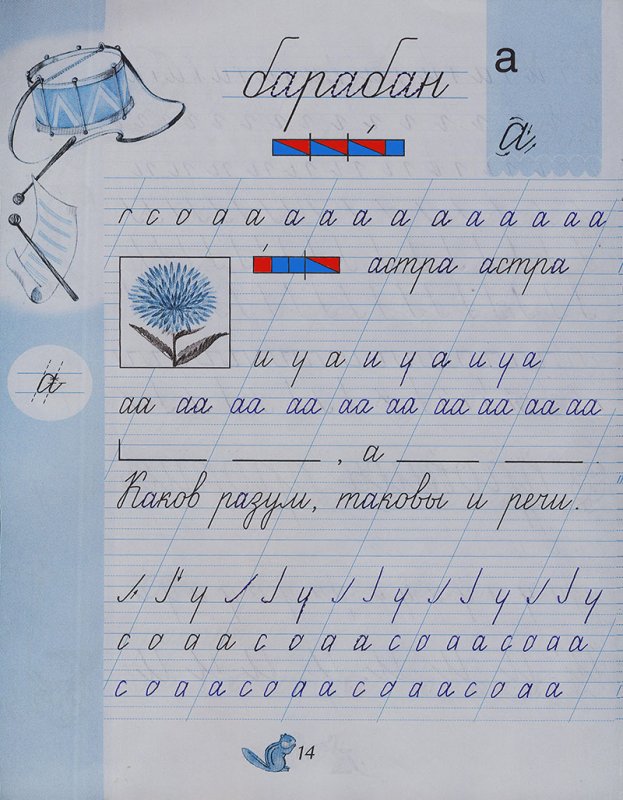 барабан
а
а
г с о а а а а а а а а а а а а
астра астра
и у а и у а и у а
а
аа аа аа аа аа аа аа аа аа аа
, а .
Каков разум, таковы и речи.
у у у у у
с о а а с о а а с о а а с о а а
с о а а с о а а с о а а с о а а
14